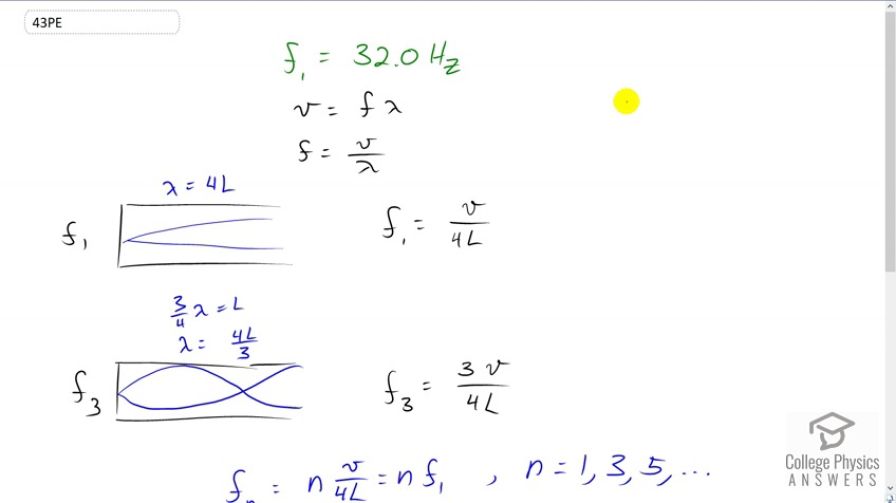 43PE
f₁ = 32.0 Hz
v = f λ
f = v/λ
λ = 4L
f₁
f₁ = v/4L
3/4 λ = L
λ = 4L/3
f₃
f₃ = 3v/4L
fₙ = n v/4L = n f₁ , n = 1, 3, 5, ...
College Physics
ANSWERS